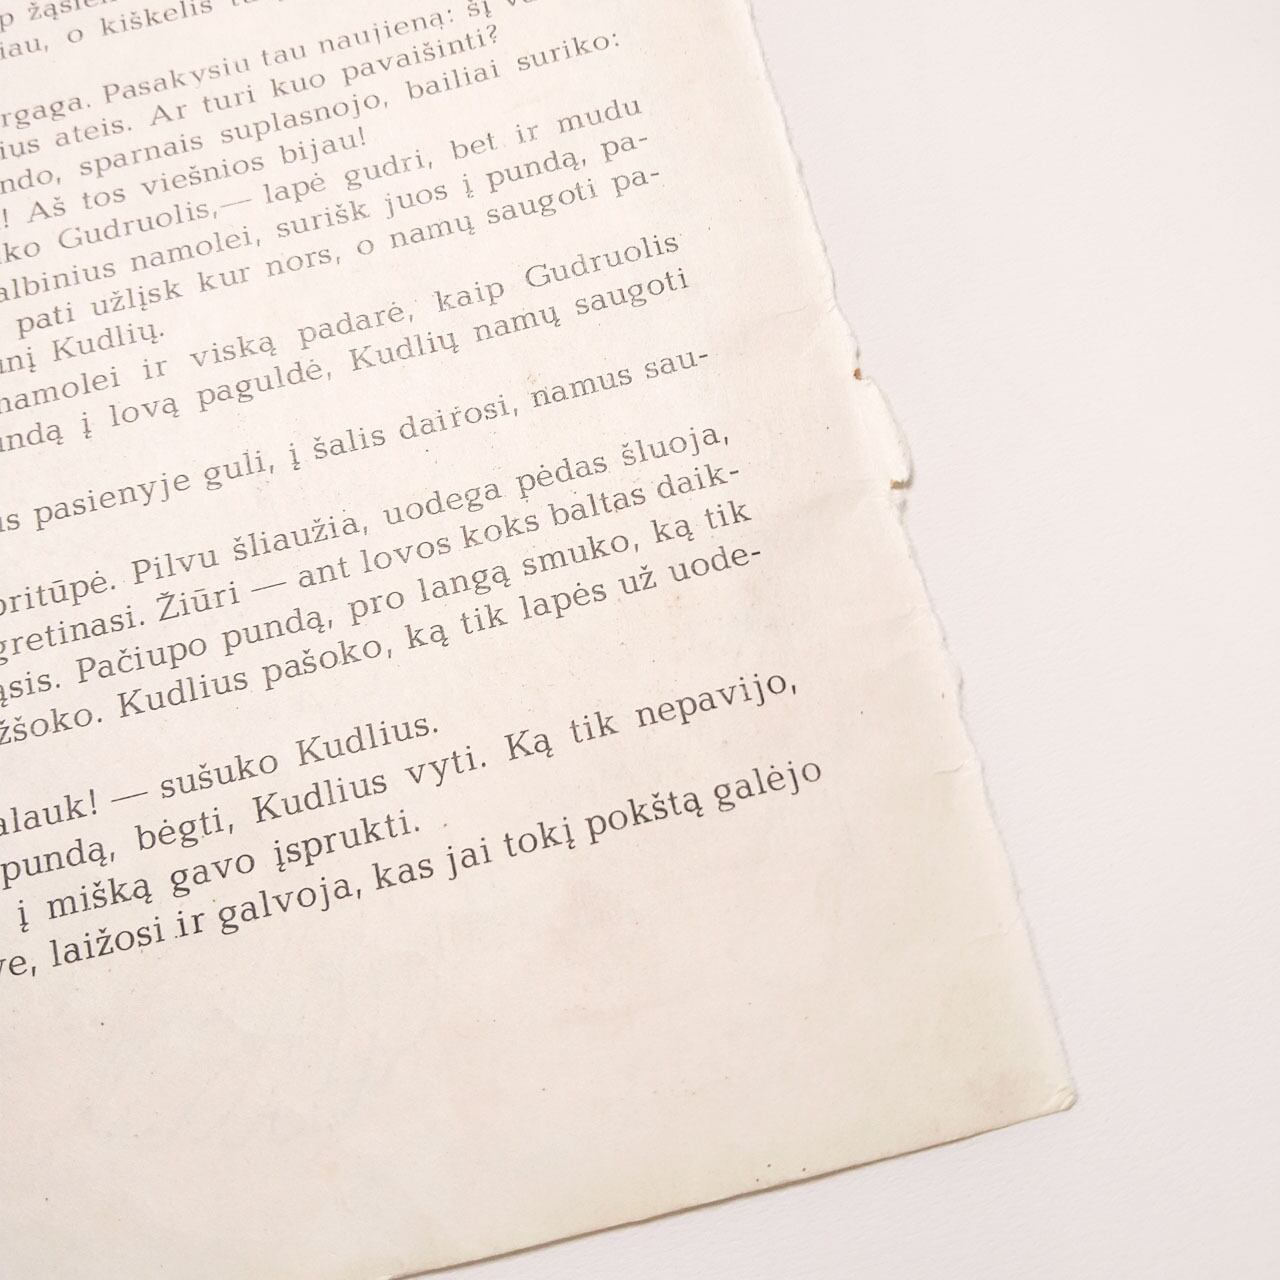 iau, o kiškelis
rgaga. Pasakysiu tau naujieną: šį
ius ateis. Ar turi kuo pavaišinti?
ndo, sparnais suplasnojo, bailiai suriko:
! Aš tos viešnios bijau!
ko Gudruolis,— lapė gudri, bet ir mudu
albinius namolei, surišk juos į pundą, pa-
pati užlįsk kur nors, o namų saugoti pa-
unį Kudlių.
namolei ir viską padarė, kaip Gudruolis
undą į lovą paguldė, Kudlių namų saugoti
us pasienyje guli, į šalis dairosi, namus sau-
pritūpė. Pilvu šliaužia, uodega pėdas šluoja,
gretinasi. Žiūri — ant lovos koks baltas daik-
ąsis. Pačiupo pundą, pro langą smuko, ką tik
žšoko. Kudlius pašoko, ką tik lapės už uode-
alauk! — sušuko Kudlius.
pundą, bėgti, Kudlius vyti. Ką tik nepavijo,
į mišką gavo įsprukti.
ve, laižosi ir galvoja, kas jai tokį pokštą galėjo